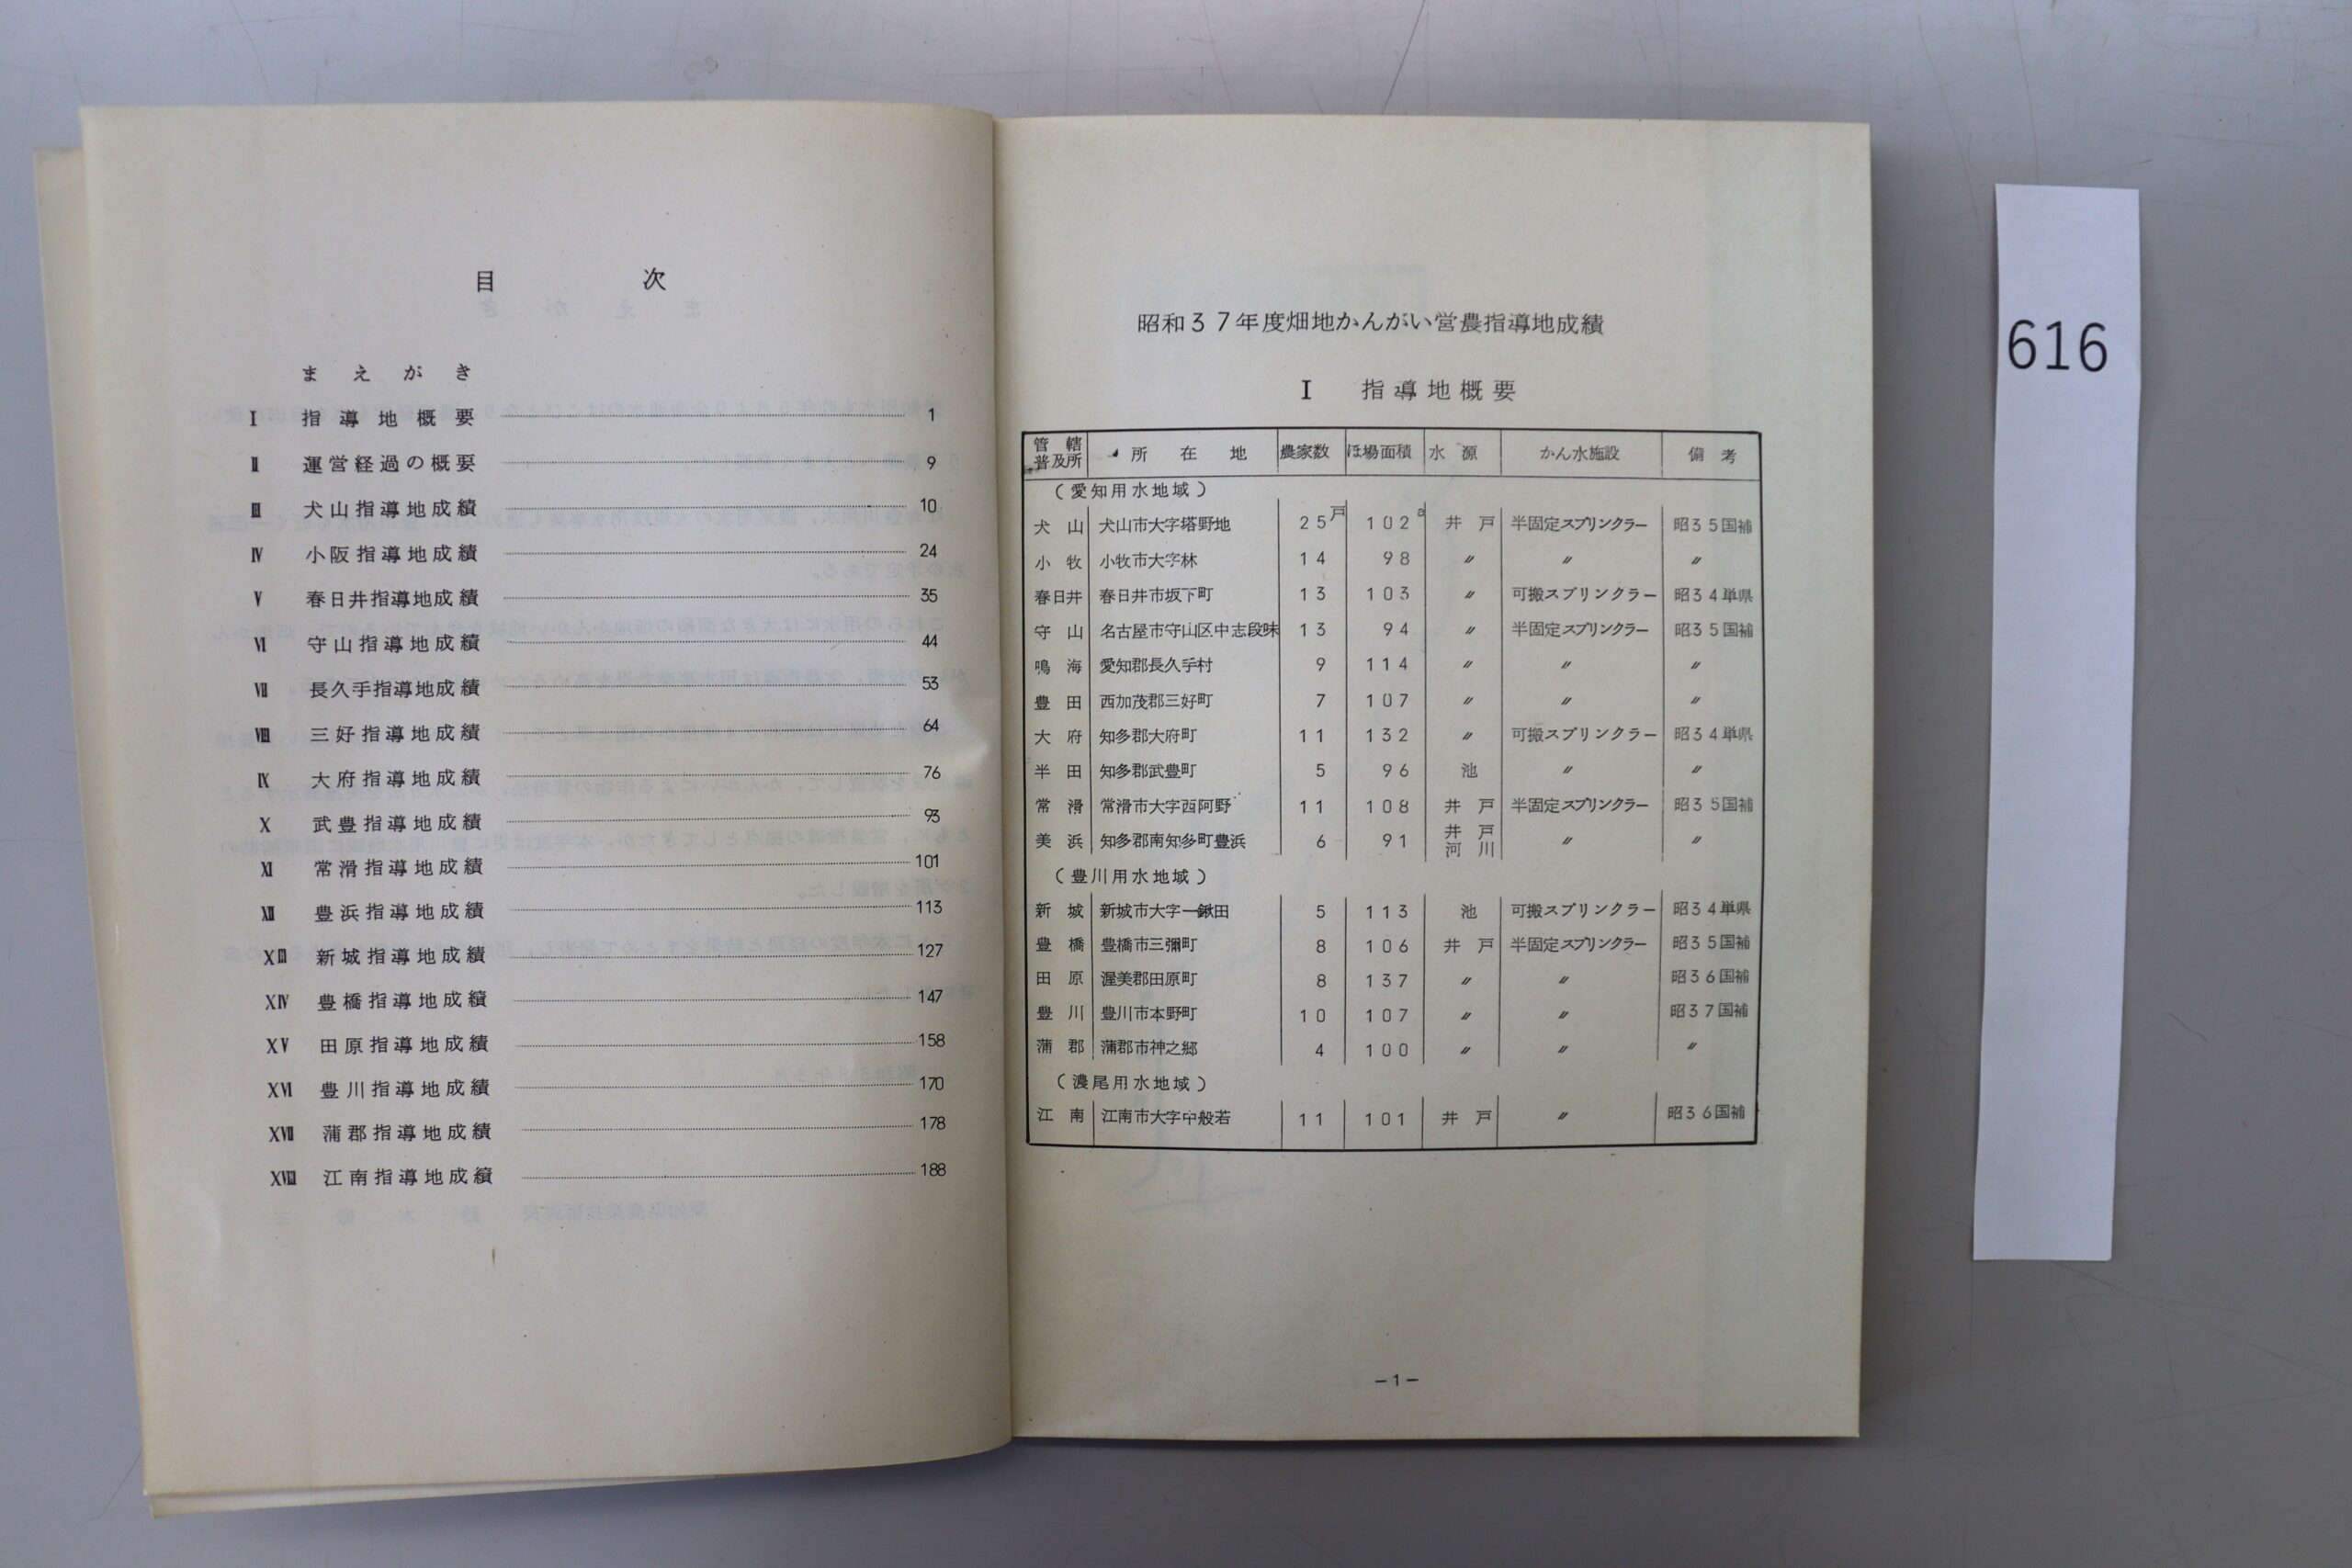 目 次
まえがき
Ⅰ 指導地概要 1
Ⅱ 運営経過の概要 9
Ⅲ 犬山指導地成績 10
Ⅳ 小阪指導地成績 24
Ⅴ 春日井指導地成績 35
Ⅵ 守山指導地成績 44
Ⅶ 長久手指導地成績 53
Ⅷ 三好指導地成績 64
Ⅸ 大府指導地成績 76
Ⅹ 武豊指導地成績 93
Ⅺ 常滑指導地成績 101
Ⅻ 豊浜指導地成績 113
XⅢ 新城指導地成績 127
XⅣ 豊橋指導地成績 147
XⅤ 田原指導地成績 158
XⅥ 豊川指導地成績 170
XⅦ 蒲郡指導地成績 178
XⅧ 江南指導地成績 188
昭和37年度畑地かんがい営農指導地成績
Ⅰ 指導地概要
管轄普及所 所在地 農家数 ほ場面積 水源 かん水施設 備考
(愛知用水地域)
犬山 犬山市大字塔野地 25戸 102a 井戸 半固定スプリンクラー 昭35国補
小牧 小牧市大字林 14 98 〃 〃 〃
春日井 春日井市坂下町 13 103 〃 可搬スプリンクラー 昭34単県
守山 名古屋市守山区中志段味 13 94 〃 半固定スプリンクラー 昭35国補
鳴海 愛知郡長久手村 9 114 〃 〃 〃
豊田 西加茂郡三好町 7 107 〃 〃 〃
大府 知多郡大府町 11 132 〃 可搬スプリンクラー 昭34単県
半田 知多郡武豊町 5 96 池 〃 〃
常滑 常滑市大字西阿野 11 108 井戸 半固定スプリンクラー 昭35国補
美浜 知多郡南知多町豊浜 6 91 井戸河川 〃 〃
(豊川用水地域)
新城 新城市大字一鍬田 5 113 池 可搬スプリンクラー 昭34単県
豊橋 豊橋市三彌町 8 106 井戸 半固定スプリンクラー 昭35国補
田原 渥美郡田原町 8 137 〃 〃 昭36国補
豊川 豊川市本野町 10 107 〃 〃 昭37国補
蒲郡 蒲郡市神之郷 4 100 〃 〃 〃
(濃尾用水地域)
江南 江南市大字中般若 11 101 井戸 〃 昭36国補
－1－
616